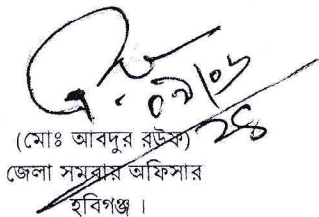 (মোঃ আবদুর রউফ)
জেলা সমবায় অফিসার
হবিগঞ্জ ।